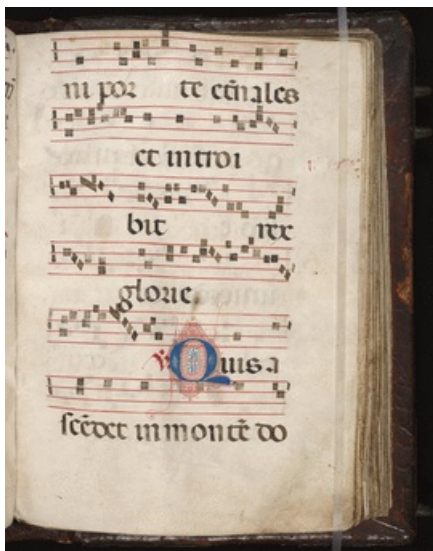 ni por te et̄nales
et introi
bit rex
glorie
℣ Quis a
scēdet in montē do